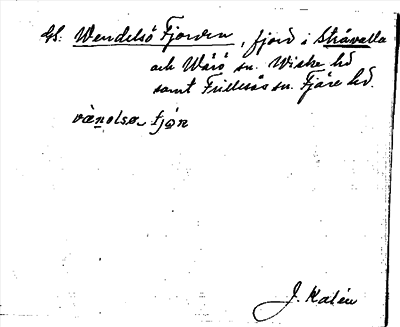 Gs. Wendelsö Fjorden, fjord i Stråvalla
och Wärö sn. Wiske hd
samt Frillesås sn. Fjäre hd.
vænəlsə fjɷn
J. Kalén